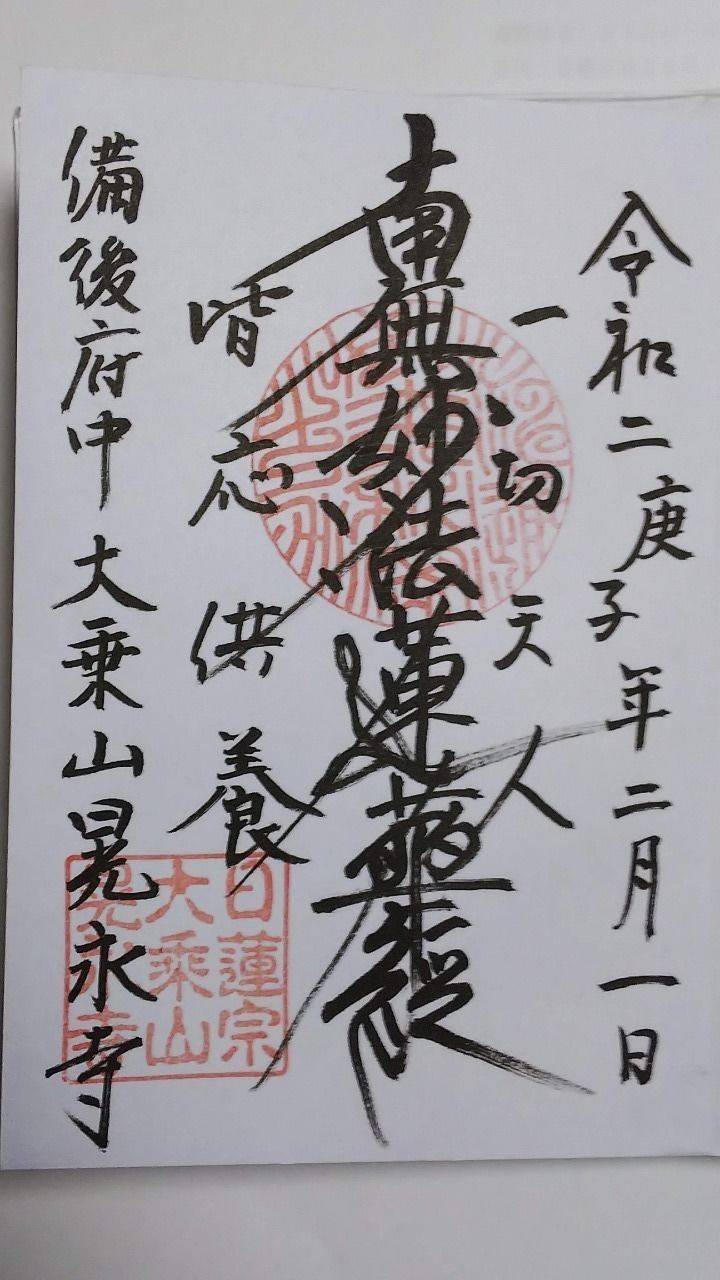 令和二庚子年二月一日
一切天人
南無妙法蓮華経
皆応供養
備後府中 大乗山晃永寺
日蓮宗
大乗山
晃永寺